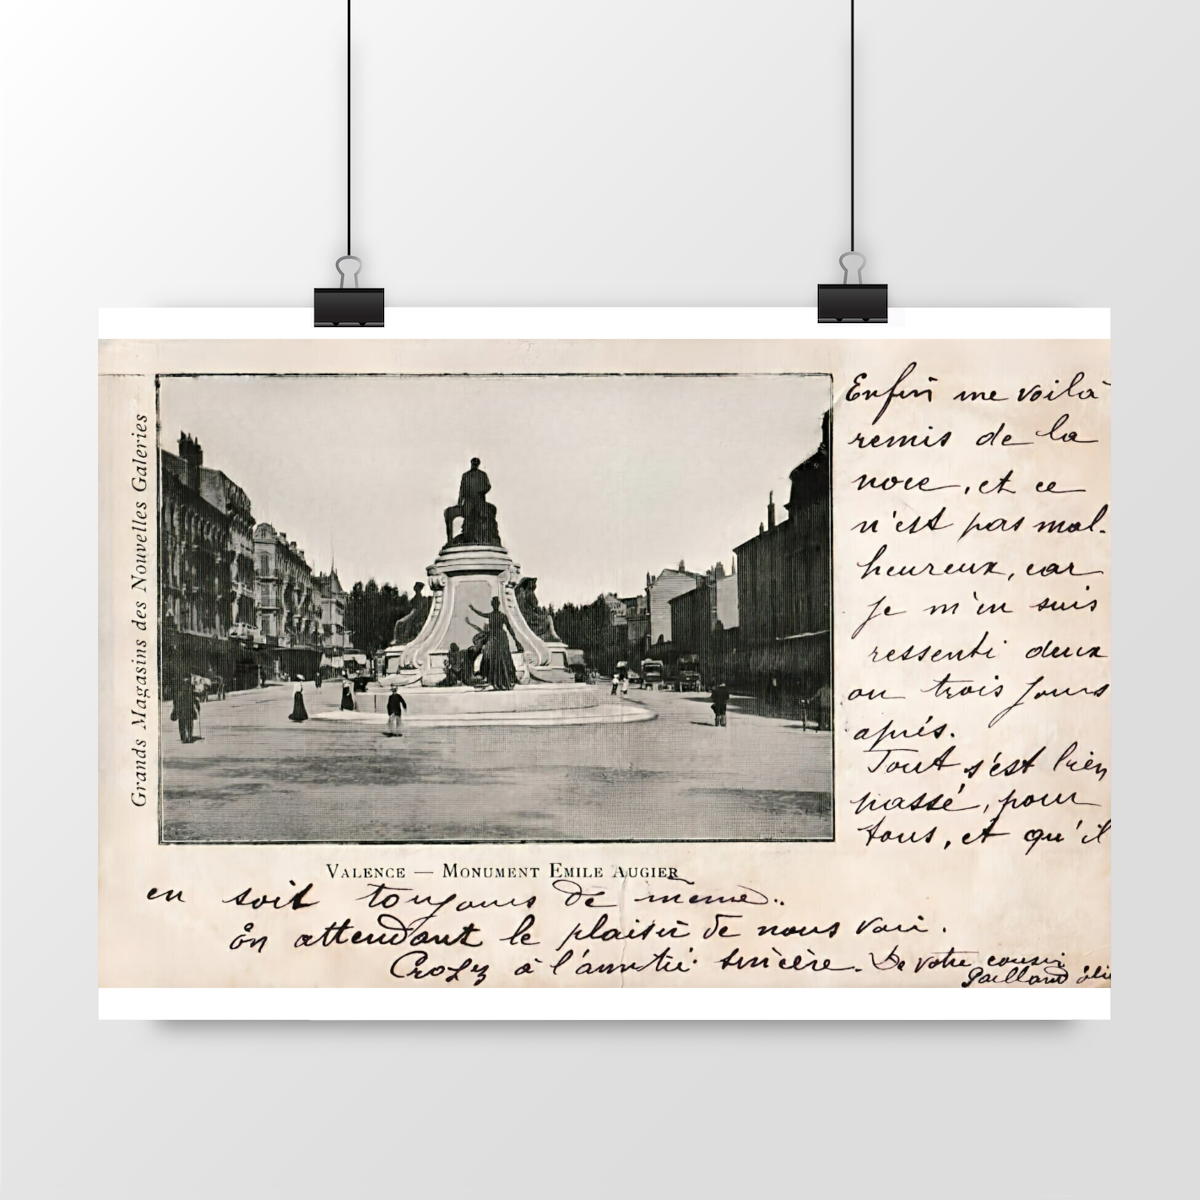 Grands Magasins des Nouvelles Galeries
VALENCE — MONUMENT EMILE AUGIER
Enfin me voilà
remis de la
noce, et ce
n'est pas mal-
heureux, car
je m'en suis
ressenti deux
ou trois jours
après.
Tout s'est bien
passé, pour
tous, et qu'il
en soit toujours de meme..
En attendant le plaisir de nous voir.
Croyez à l'amitié sincère. De votre cousin
Gaillard